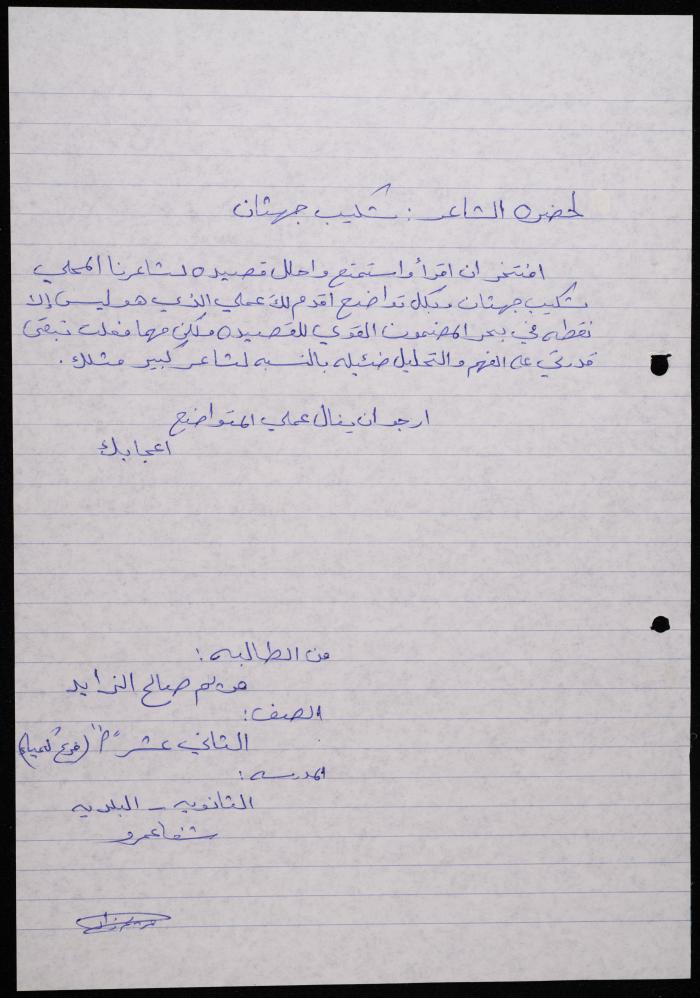 لحضرة الشاعر : شكيب جهشان
افتخر ان اقرأ واستمتع واحلل قصيده لشاعرنا المحلي
شكيب جهشان وبكل تواضع اقدم لك عملي الذي هو ليس إلا
نقطه في بحر المضمون القوي للقصيده ولكن مهما فعلت تبقى
قدرتي على الفهم والتحليل ضئيله بالنسبه لشاعر كبير مثلك .
ارجو ان ينال عملي المتواضع
اعجابك
من الطالبه :
مريم صالح الزايد
الصف :
الثاني عشر (فرع كيمياء)
المدرسه :
الثانويه - البلديه
شفاعمرو